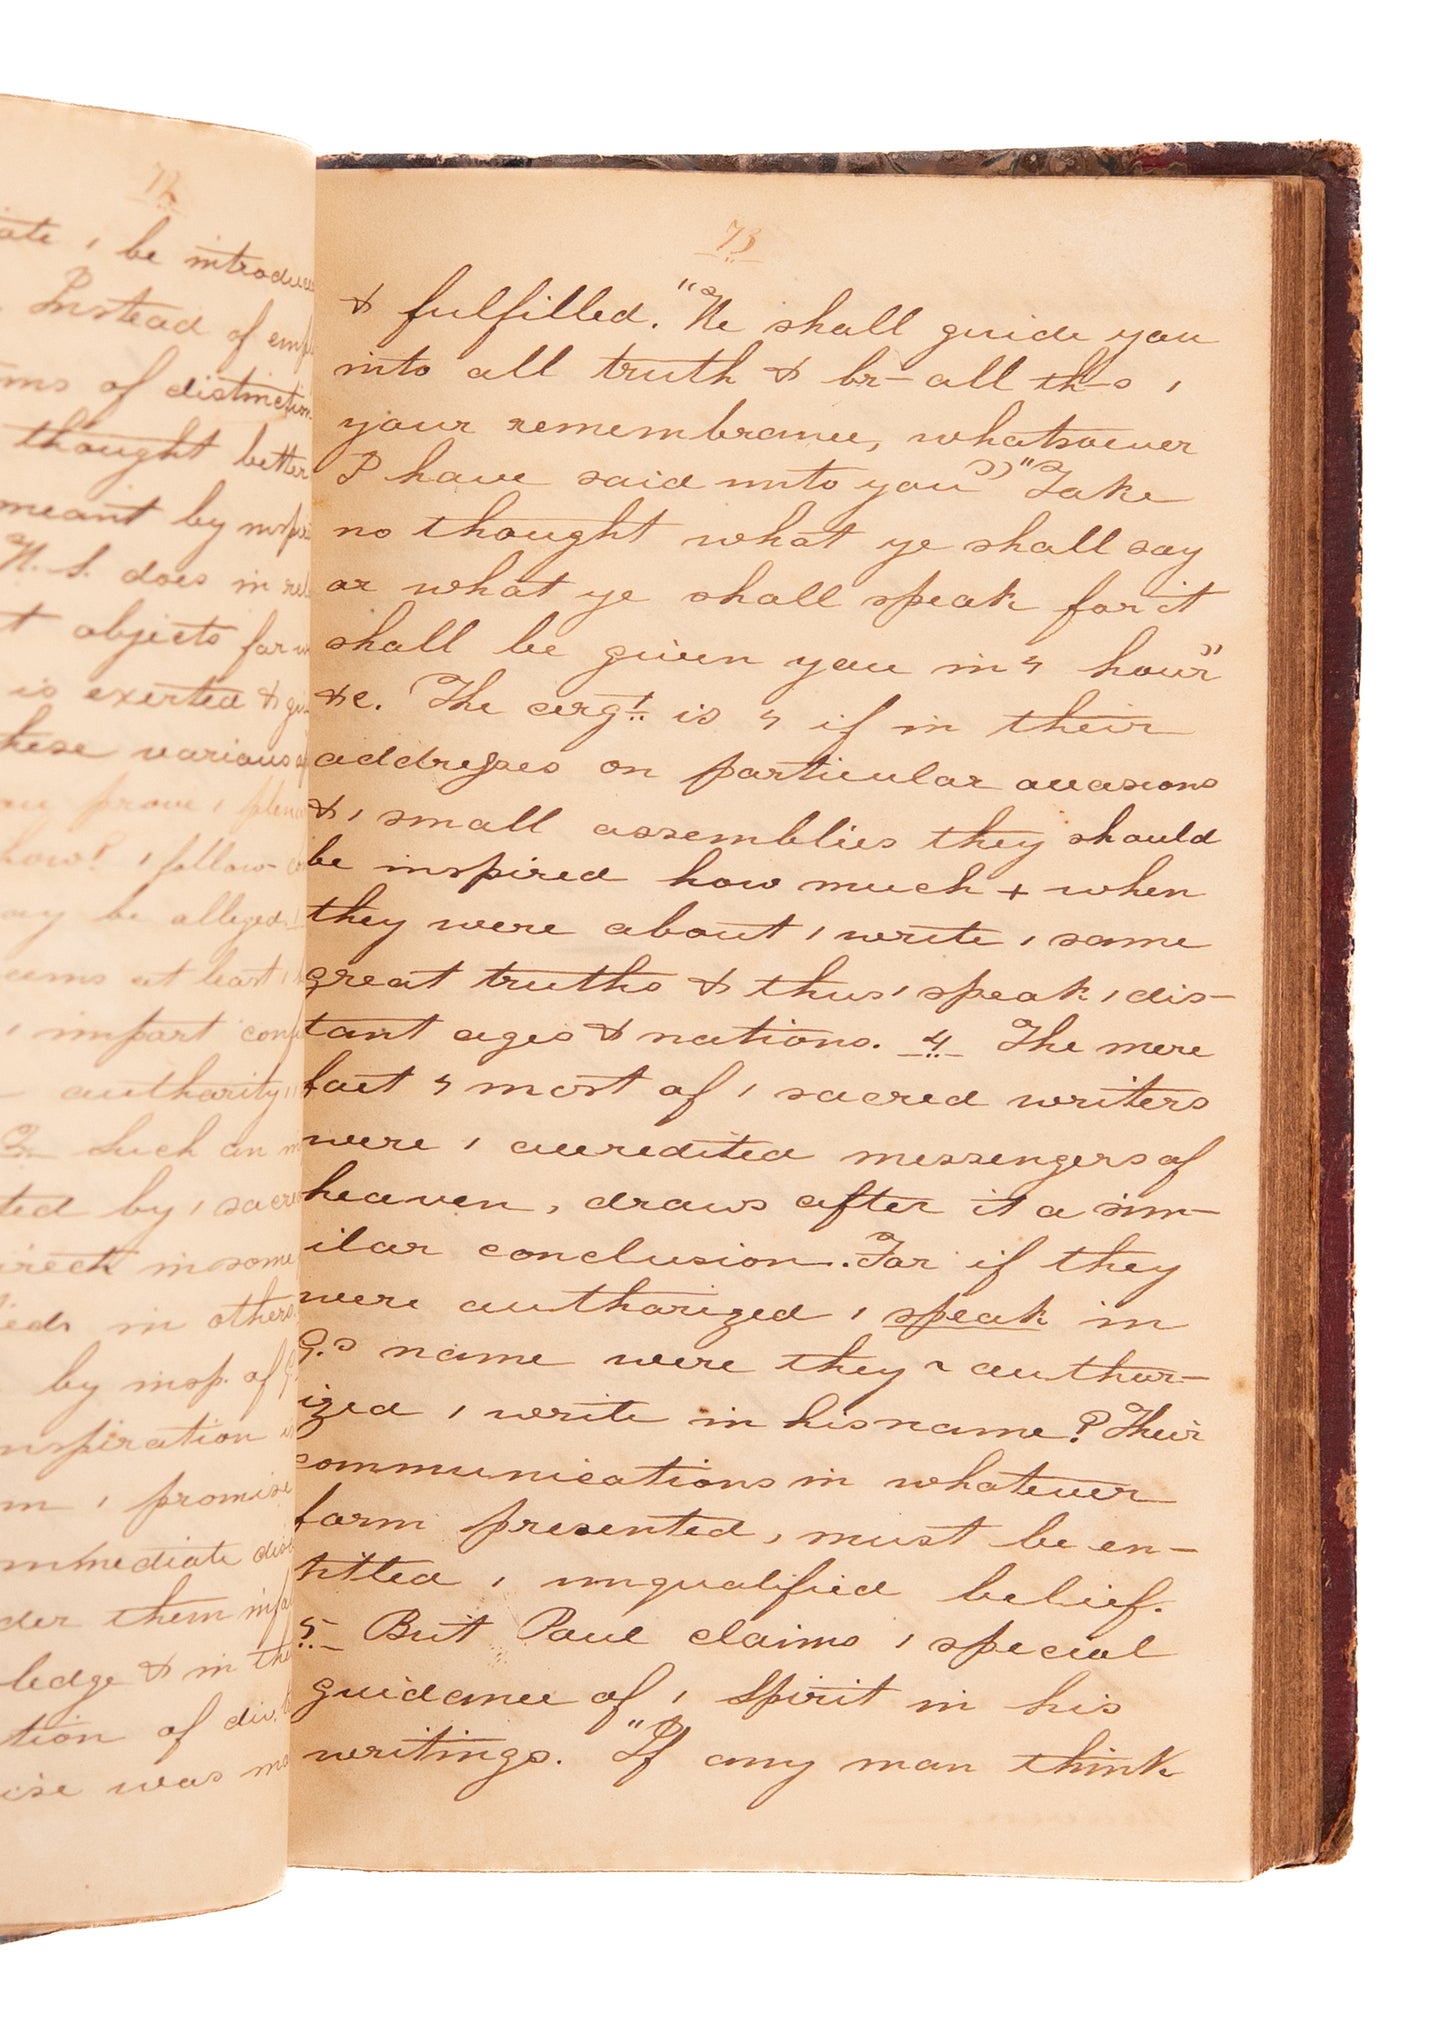 72
ate , be introduce
. Instead of emp
ms of distinction
thought better
meant by inspi
H. S. does in rel
t objects for w
is exerted & gi
hese various
prove , plen
how? , follow- co
ay be alleged
eems at least ,
, impart conf
- authority
3. Such an m
ted by , sacre
irect in some
ieds in others
by insp. of G
nspiration is
m , promise
mmediate dis
der them infal
ledge & in the
tion of div.
ise was ma
73
& fulfilled. "He shall guide you
into all truth & br- all th-s ,
your remembrance, whatsoever
I have said unto you" "Take
no thought what ye shall say
or what ye shall speak for it
shall be given you in ㄣ hour"
&c. The argt. is ㄣ if in their
addresses on particular occasions
& , small assemblies they should
be inspired how much + when
they were about , write , some
great truths & thus , speak , dis-
tant ages & nations. 4. The mere
fact ㄣ most of , sacred writers
were , accredited messengers of
heaven, draws after it a sim-
ilar conclusion. For if they
were authorized , speak in
G.'s name were they ~ author-
ized , write in his name? Their
communications in whatever
form presented, must be en-
titled , unqualified belief.
5. But Paul claims , special
guidance of , Spirit in his
writings. "If any man think